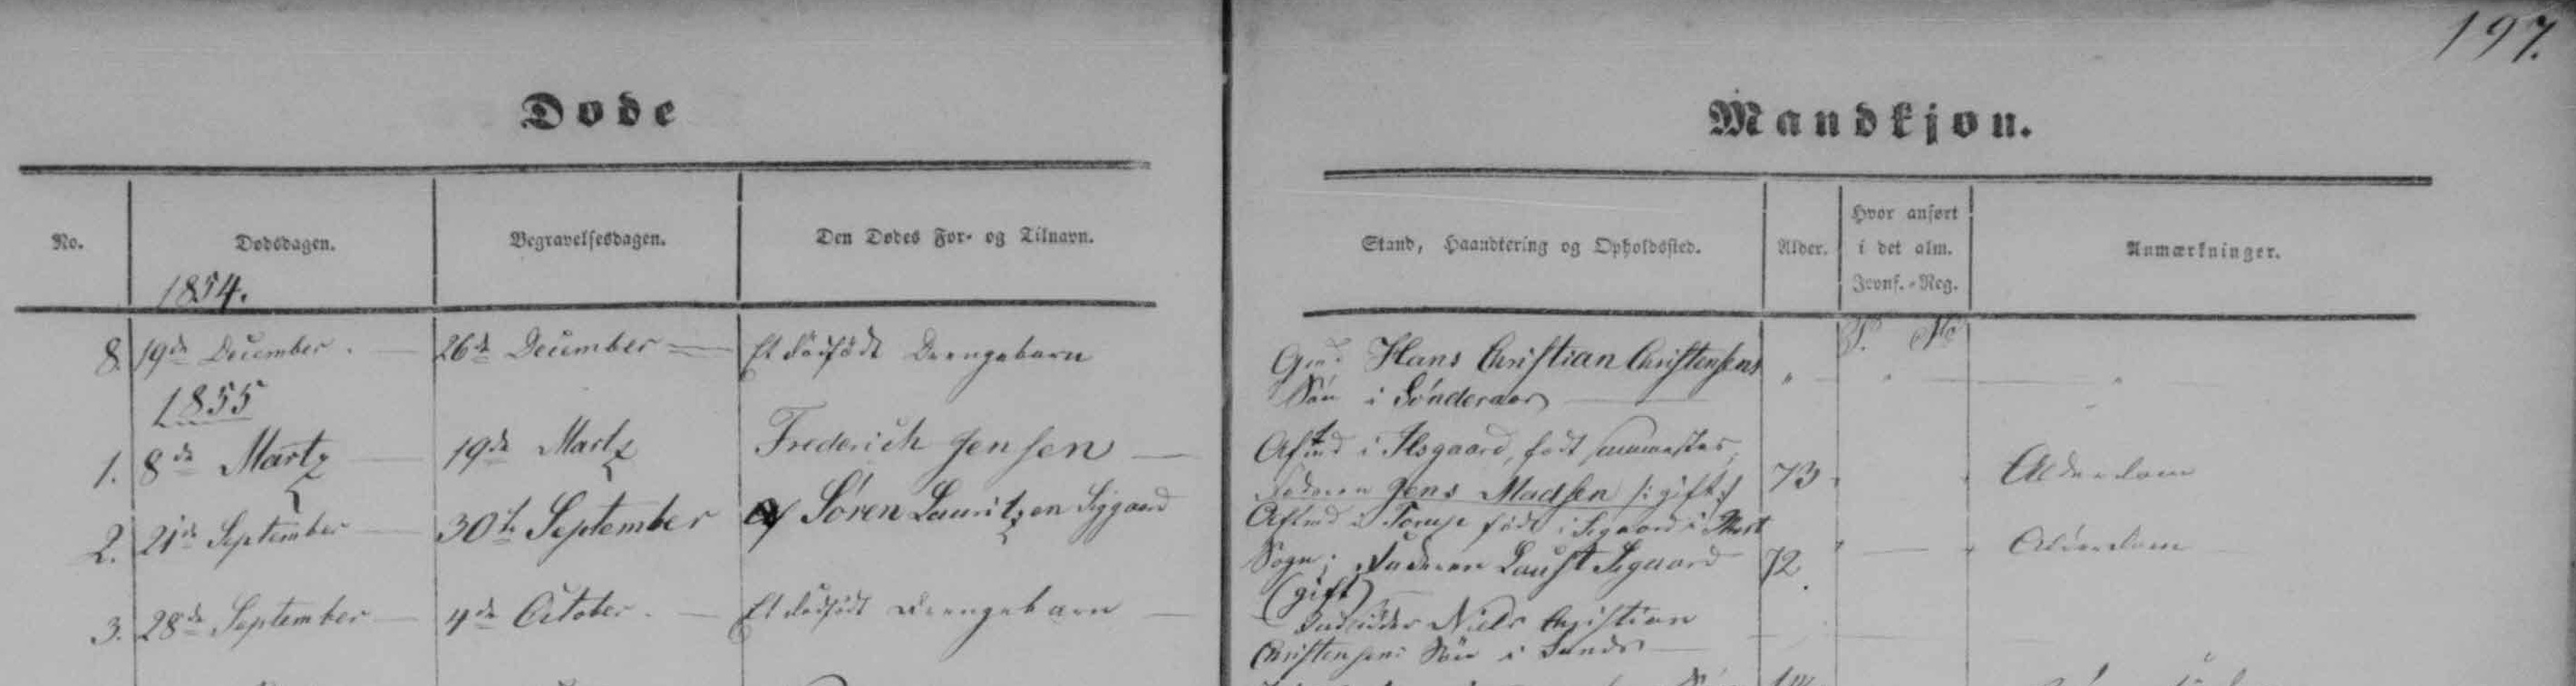 197.
Døde
Mandkjøn.
No.
Dødsdagen.
Begravelsesdagen.
Den Dødes For- og Tilnavn.
Stand, Haandtering og Opholdssted.
Alder.
Hvor anført
i det alm.
Jevnf.-Reg.
Anmærkninger.
1854.
8. 19de December. 26de December Et dødfødt Drengebarn
Hans Christian Christensens
Søn i Sønderaar
1855
1. 8de Martz 19de Martz Frederich Jensen
Aftmd i Ilsgaard, født sammesteds,
Faderen Jens Madsen /: gift :/ 73 Alderdom
2. 21de September 30te September Søren Lauritzen Siggaard
Aftmd i Torup født i Sigaard i
Sogn; Faderen Laust Sigaard 72 Alderdom
(gift)
3. 28de September 4de October. Et dødfødt Drengebarn
Indsidder Niels Christian
Christensens Søn i Sunds